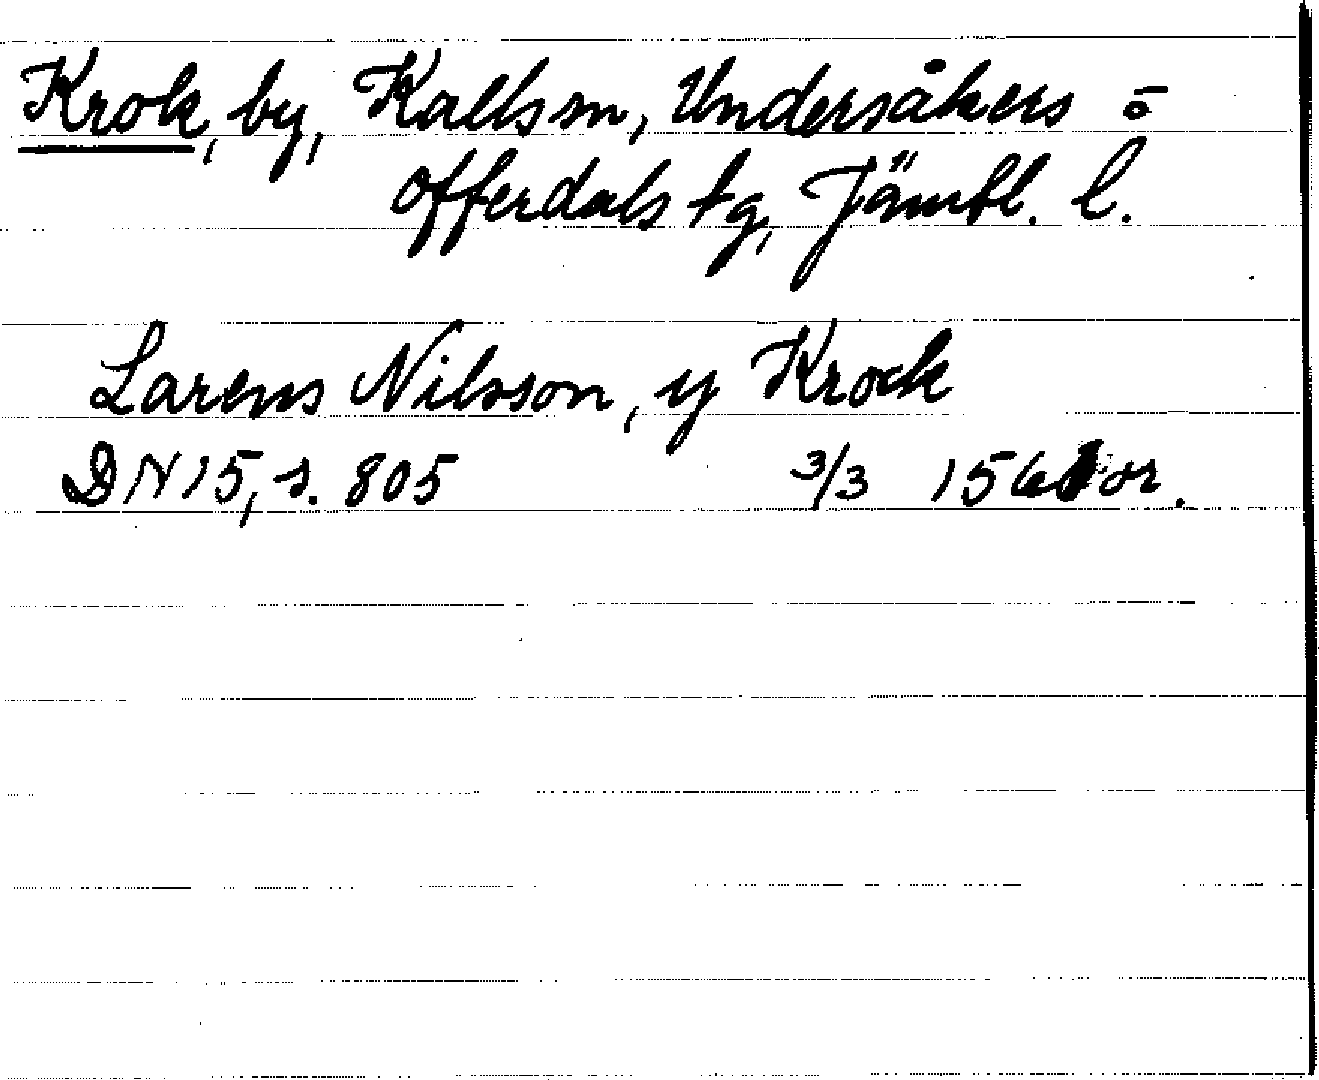 Krok, by, Kalls sn, Undersåkers o
Offerdals tg, Jämtl. l.
Larens Nilsson, y Krock
DN 15, s. 805 3/3 1561 or.